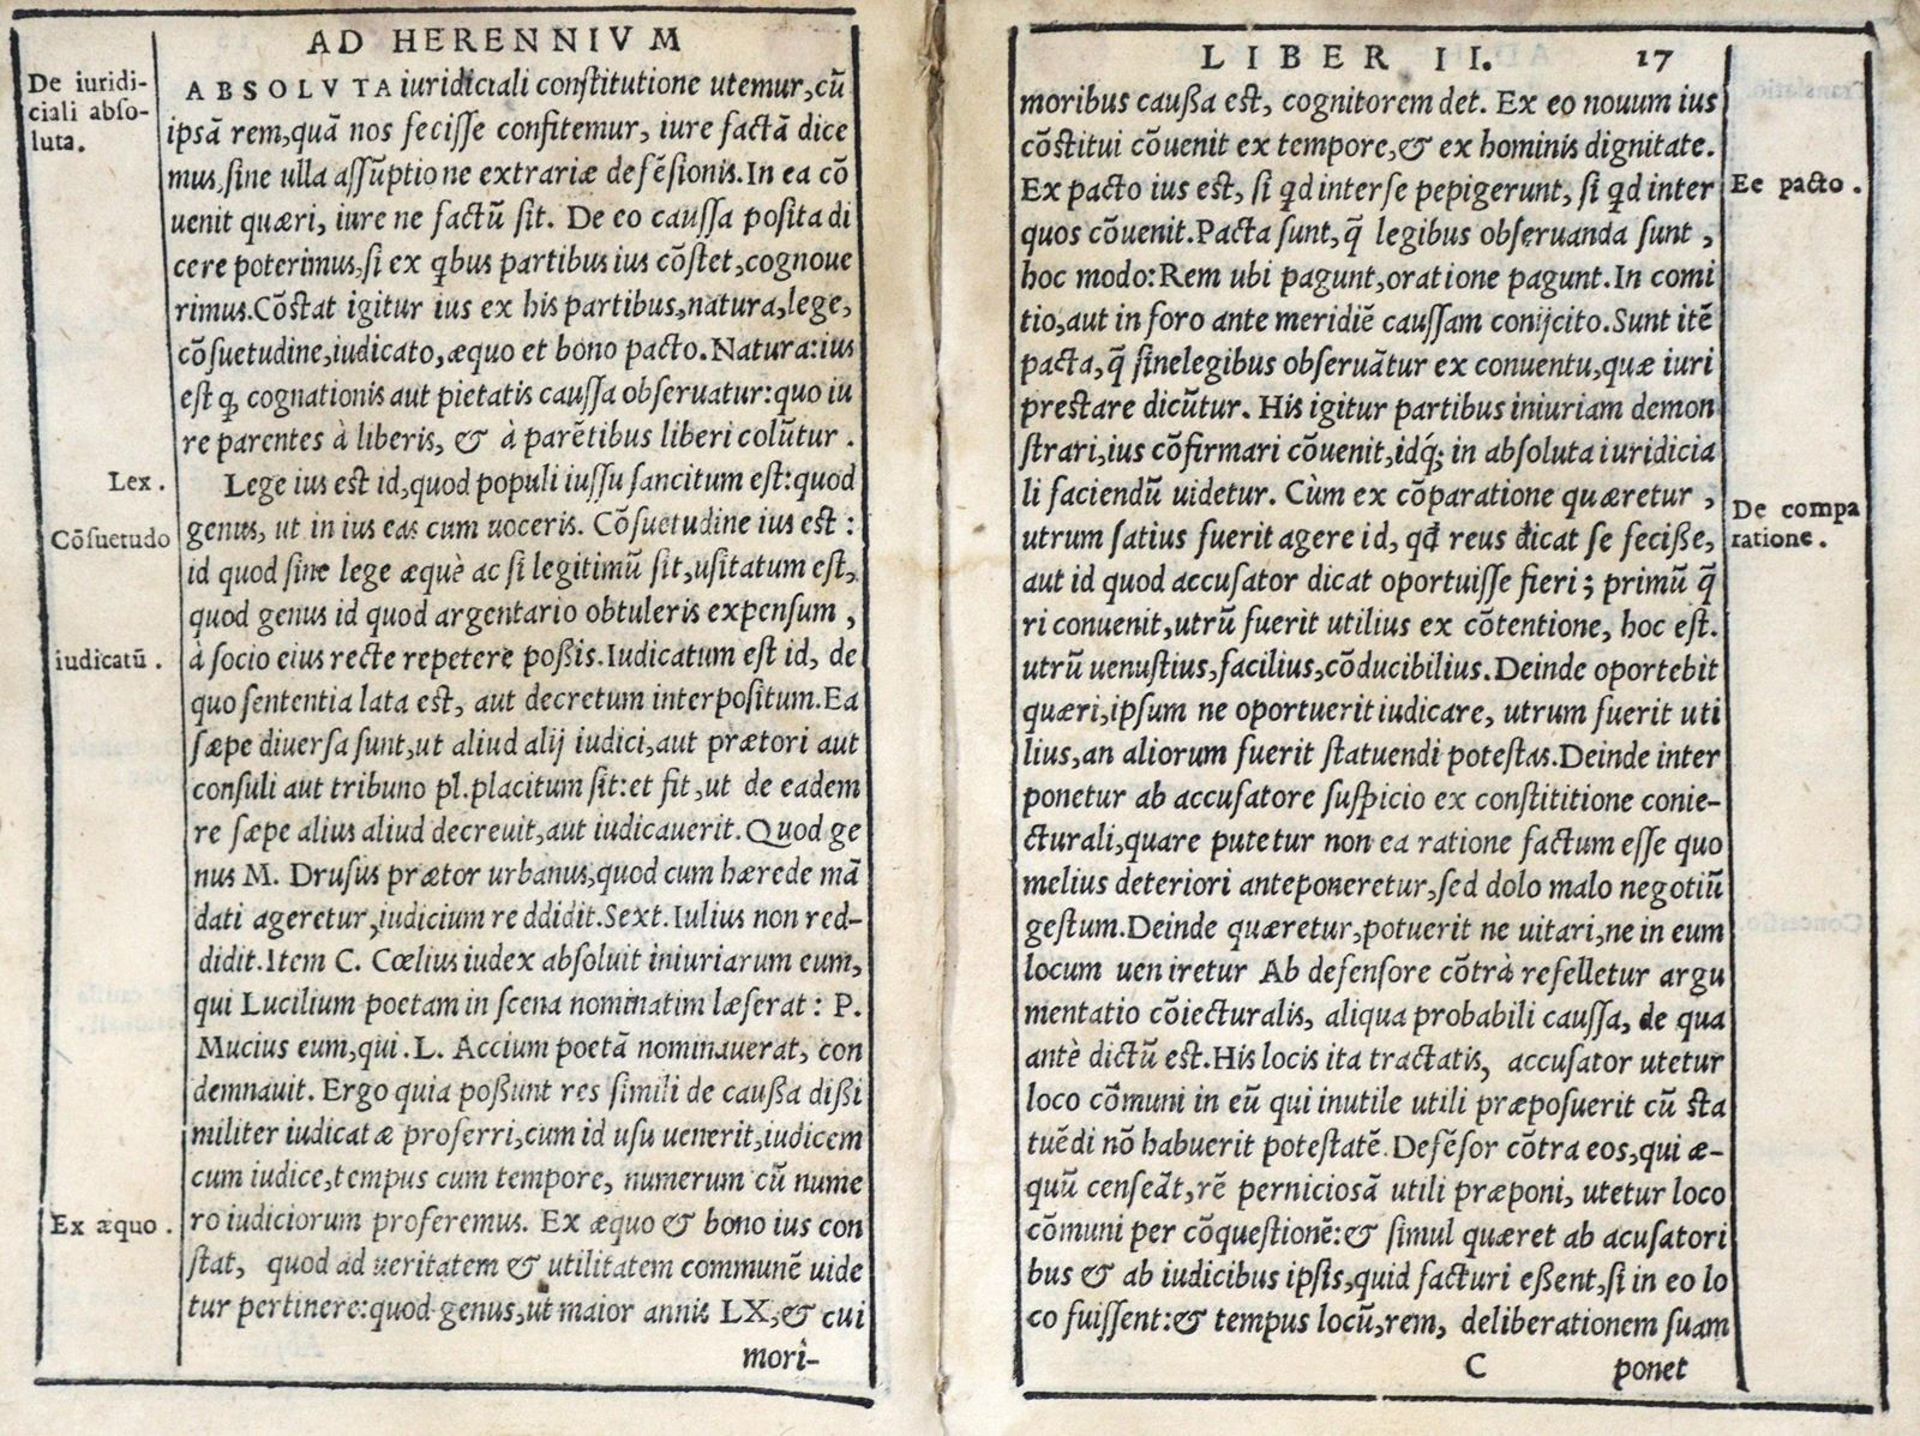 AD HERENNIVM
De iuridi-
ciali abſo-
luta.
ABSOLVTA iuridiciali conſtitutione utemur,cũ
ipsã rem,quã nos feciſſe confitemur, iure factã dice
mus,ſine ulla aſſũptione extrariæ defẽſionis.In ea cõ
uenit quæri, iure ne factũ ſit. De eo cauſſa poſita di
cere poterimus,ſi ex qbus partibus ius cõſtet,cognoue
rimus.Cõſtat igitur ius ex his partibus,natura,lege,
cõſuetudine,iudicato,æquo et bono pacto.Natura:ius
eſt ꝗ, cognationis aut pietatis cauſſa obſeruatur:quo iu
re parentes à liberis, & à parẽtibus liberi colũtur.
Lex.
Lege ius eſt id,quod populi iuſſu ſancitum eſt:quod
genus, ut in ius eas cum uoceris. Cõſuetudine ius eſt:
Cõſuetudo
id quod ſine lege æquè ac ſi legitimũ ſit,uſitatum eſt,
quod genus id quod argentario obtuleris expenſum,
à ſocio eius recte repetere poßis.Iudicatum eſt id, de
iudicatũ.
quo ſententia lata eſt, aut decretum interpoſitum.Ea
ſæpe diuerſa ſunt,ut aliud alij iudici,aut prætori aut
conſuli aut tribuno pl.placitum ſit:et fit,ut de eadem
re ſæpe alius aliud decreuit,aut iudicauerit.Quod ge
nus M. Druſus prætor urbanus,quod cum hærede mã
dati ageretur,iudicium re ddidit.Sext.Iulius non red-
didit.Item C. Cœlius iudex abſoluit iniuriarum eum,
qui Lucilium poetam in ſcena nominatim læſerat: P.
Mucius eum,qui.L. Accium poetã nominauerat, con
demnauit. Ergo quia poßunt res ſimili de caußa dißi
militer iudicatæ proferri,cum id uſu uenerit,iudicem
cum iudice,tempus cum tempore, numerum cũ nume
ro iudiciorum proferemus. Ex æquo & bono ius con
Ex æquo.
ſtat, quod ad ueritatem & utilitatem communẽ uide
tur pertinere:quod genus,ut maior annis LX,& cui
mori-
LIBER II. 17
moribus caußa eſt, cognitorem det. Ex eo nouum ius
cõſtitui cõuenit ex tempore,& ex hominis dignitate.
Ex pacto ius eſt, ſi ꝗd inter ſe pepigerunt, ſi ꝗd inter
Ee pacto.
quos cõuenit.Pacta ſunt,q̃ legibus obſeruanda ſunt,
hoc modo:Rem ubi pagunt,oratione pagunt.In comi
tio,aut in foro ante meridiẽ cauſſam conijcito.Sunt itẽ
pacta,q̃ ſinelegibus obſeruãtur ex conuentu,quæ iuri
preſtare dicũtur. His igitur partibus iniuriam demon
ſtrari,ius cõfirmari cõuenit,idq́; in abſoluta iuridicia
li faciendũ uidetur. Cùm ex cõparatione quæretur,
De compa
ratione.
utrum ſatius fuerit agere id, qđ reus dicat ſe feciße,
aut id quod accuſator dicat oportuiſſe fieri; primũ q̃
ri conuenit,utrũ fuerit utilius ex cõtentione, hoc eſt.
utrũ uenuſtius,facilius,cõducibilius.Deinde oportebit
quæri,ipſum ne oportuerit iudicare, utrum fuerit uti
lius,an aliorum fuerit ſtatuendi poteſtas.Deinde inter
ponetur ab accuſatore ſuſpicio ex conſtititione conie-
cturali,quare putetur non ea ratione factum eſſe quo
melius deteriori anteponeretur,ſed dolo malo negotiũ
geſtum.Deinde quæretur,potuerit ne uitari,ne in eum
locum ueniretur Ab defenſore cõtrà refelletur argu
mentatio cõiecturalis, aliqua probabili cauſſa, de qua
antè dictũ eſt.His locis ita tractatis, accuſator utetur
loco cõmuni in eũ qui inutile utili præpoſuerit cũ ſta
tuẽdi nõ habuerit poteſtatẽ.Defẽſor cõtra eos,qui æ-
quũ cenſeãt,rẽ pernicioſã utili præponi, utetur loco
cõmuni per cõqueſtionẽ:& ſimul quæret ab acuſatori
bus & ab iudicibus ipſis,quid facturi eßent,ſi in eo lo
co fuiſſent:& tempus locũ,rem, deliberationem ſuam
C ponet